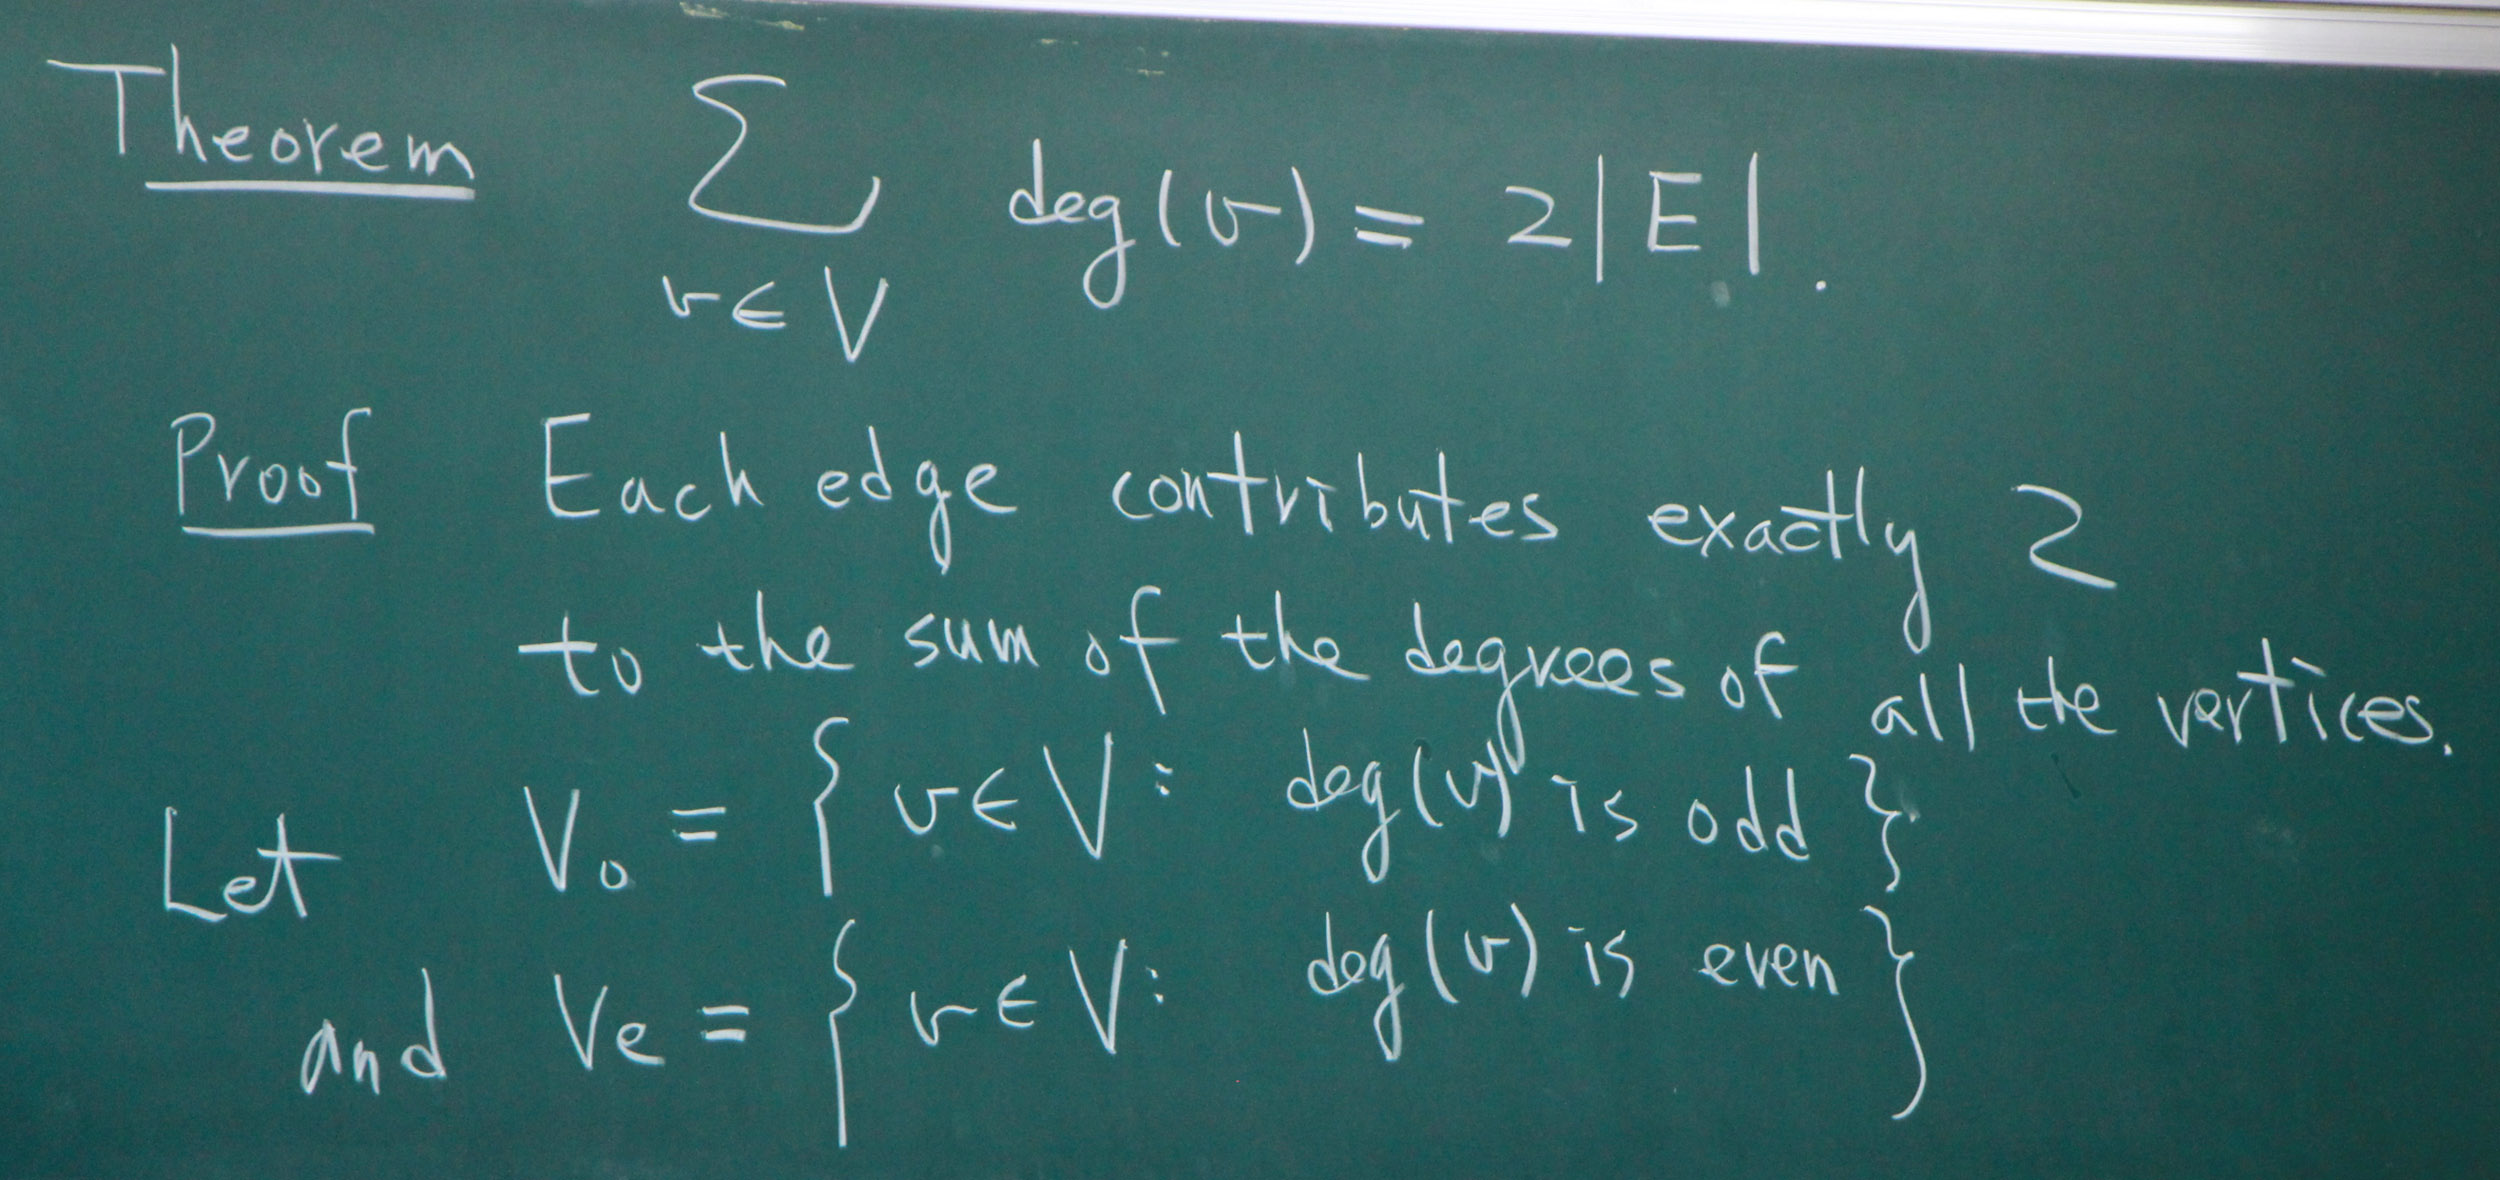 Theorem ∑ deg(v) = 2|E|.
v∈V
Proof Each edge contributes exactly 2
to the sum of the degrees of all the vertices.
Let Vo = { v∈V: deg(v) is odd }
and Ve = { v∈V: deg(v) is even }